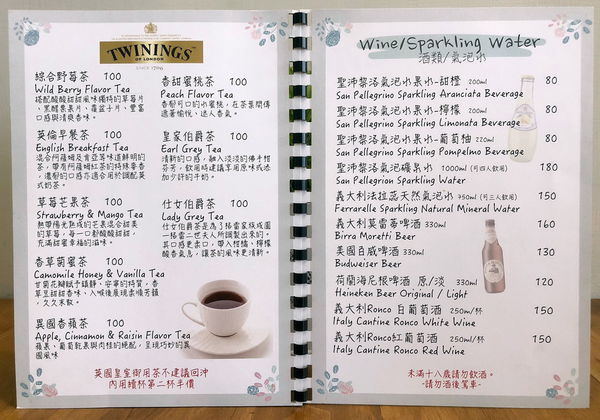 TWININGS
OF LONDON
SINCE 1706
綜合野莓茶 100
Wild Berry Flavor Tea
搭配酸酸甜甜風味獨特的草莓片
、黑醋栗果片、覆盆子片、豐富
口感與清爽香氣。
英倫早餐茶 100
English Breakfast Tea
混合阿薩姆及肯亞茶味道鮮明的
茶,帶有阿薩姆紅茶的特殊麥香
,濃郁的口感亦適合用於調配英
式奶茶。
草莓芒果茶 100
Strawberry & Mango Tea
熱帶陽光熟成的芒果混合甜美
的草莓,每一口都酸酸甜甜,
充滿甜蜜幸福的滋味。
香草菊蜜茶 100
Camomile Honey & Vanilla Tea
甘菊花瓣賦予鎮靜、安寧的特質,香
草豆甜甜香味、入喉後展現柔順芳韻
,久久不散。
異國香蘋茶 100
Apple, Cinnamon & Raisin Flavor Tea
蘋果、葡萄乾果與肉桂的絕配,呈現巧妙的異
國風味
香甜蜜桃茶 100
Peach Flavor Tea
香郁可口的水蜜桃,在茶葉間傳
遞著愉悅、迷人香氣。
皇家伯爵茶 100
Earl Grey Tea
清新的口感,融入淡淡的佛手柑
芬芳,飲用時建議單用原味或添
加少許的牛奶。
仕女伯爵茶 100
Lady Grey Tea
仕女伯爵茶是為了格雷家族成圖
格雷二世夫人所調製出來的,
其口感更柔口,帶入柑橘、檸檬
酸香氣息,讓茶的風味更清新。
英國皇室御用茶不建議回沖
內用續杯第二杯半價
Wine/Sparkling Water
酒類/氣泡水
聖沛黎洛氣泡水果水-甜橙 200ml 80
San Pellegrino Sparkling Aranciata Beverage
聖沛黎洛氣泡水果水-檸檬 200ml 80
San Pellegrino Sparkling Limonata Beverage
聖沛黎洛氣泡水果水-葡萄柚 220ml 80
San Pellegrino Sparkling Pompelmo Beverage
聖沛黎洛氣泡礦泉水 1000ml (約四人飲用) 180
San Pellegrion Sparkling Water
義大利法拉蕊天然氣泡水 750ml (約三人飲用) 150
Ferrarelle Sparkling Natural Mineral Water
義大利莫雷蒂啤酒 330ml 160
Birra Moretti Beer
美國百威啤酒 330ml 130
Budwiser Beer
荷蘭海尼根啤酒 原/淡 330ml 120
Heineken Beer Original / Light
義大利Ronco 白葡萄酒 250m/杯 150
Italy Cantine Ronco White Wine
義大利Ronco紅葡萄酒 250ml/杯 150
Italy Cantine Ronco Red Wine
未滿十八歲請勿飲酒。
-請勿酒後駕車-